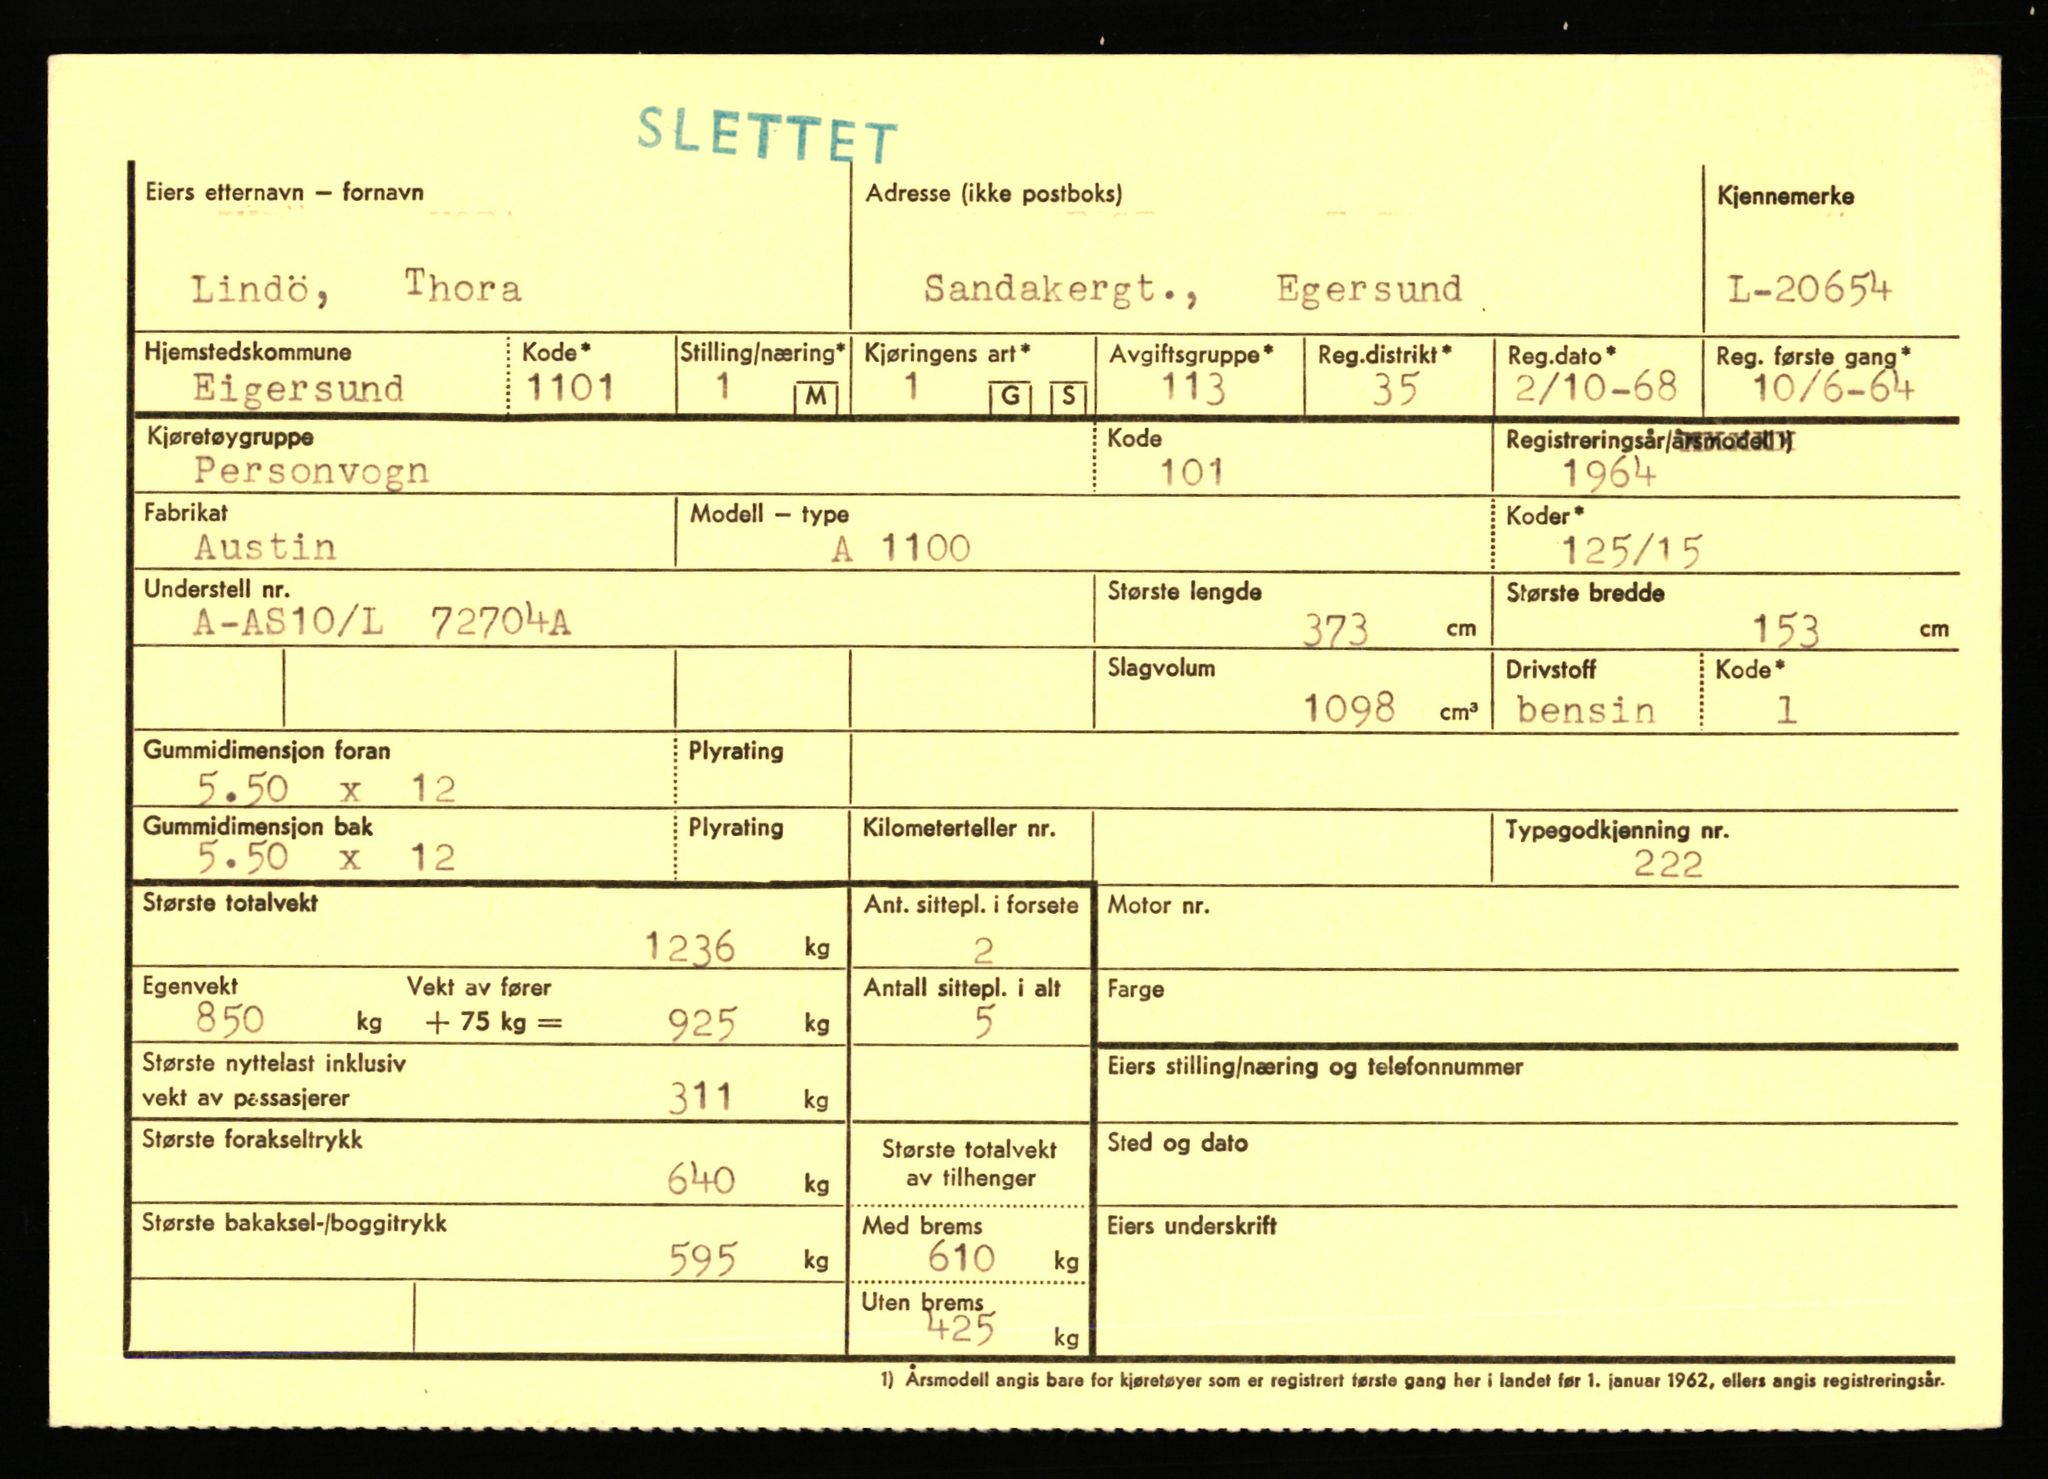 SLETTET
Eiers etternavn – fornavn Adresse (ikke postboks) Kjennemerke
Lindö, Thora Sandakergt., Egersund L-20654
Hjemstedskommune Kode* Stilling/næring* Kjøringens art* Avgiftsgruppe* Reg.distrikt* Reg.dato* Reg. første gang*
Eigersund 1101 1 M 1 G S 113 35 2/10-68 10/6-64
Kjøretøygruppe Kode Registreringsår/årsmodell 1)
Personvogn 101 1964
Fabrikat Modell – type Koder*
Austin A 1100 125/15
Understell nr. Største lengde Største bredde
A-AS10/L 72704A 373 cm 153 cm
Slagvolum Drivstoff Kode*
1098 cm³ bensin 1
Gummidimensjon foran Plyrating
5.50 x 12
Gummidimensjon bak Plyrating Kilometerteller nr. Typegodkjenning nr.
5.50 x 12 222
Største totalvekt Ant. sittepl. i forsete Motor nr.
1236 kg 2
Egenvekt Vekt av fører Antall sittepl. i alt Farge
850 kg + 75 kg = 925 kg 5
Største nyttelast inklusiv Eiers stilling/næring og telefonnummer
vekt av passasjerer 311 kg
Største forakseltrykk Største totalvekt Sted og dato
av tilhenger
640 kg
Største bakaksel-/boggitrykk Med brems Eiers underskrift
595 kg 610 kg
Uten brems
425 kg
1) Årsmodell angis bare for kjøretøyer som er registrert første gang her i landet før 1. januar 1962, ellers angis registreringsår.